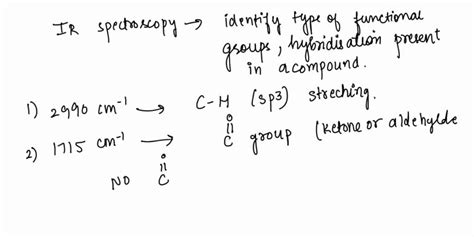 IR spectroscopy → identify type of functional
groups, hybridisation present
in a compound.
1) 2990 cm⁻¹ → C-H (sp3) streching.
2) 1715 cm⁻¹ → O
=
C group (ketone or aldehyde
NO O
=
C